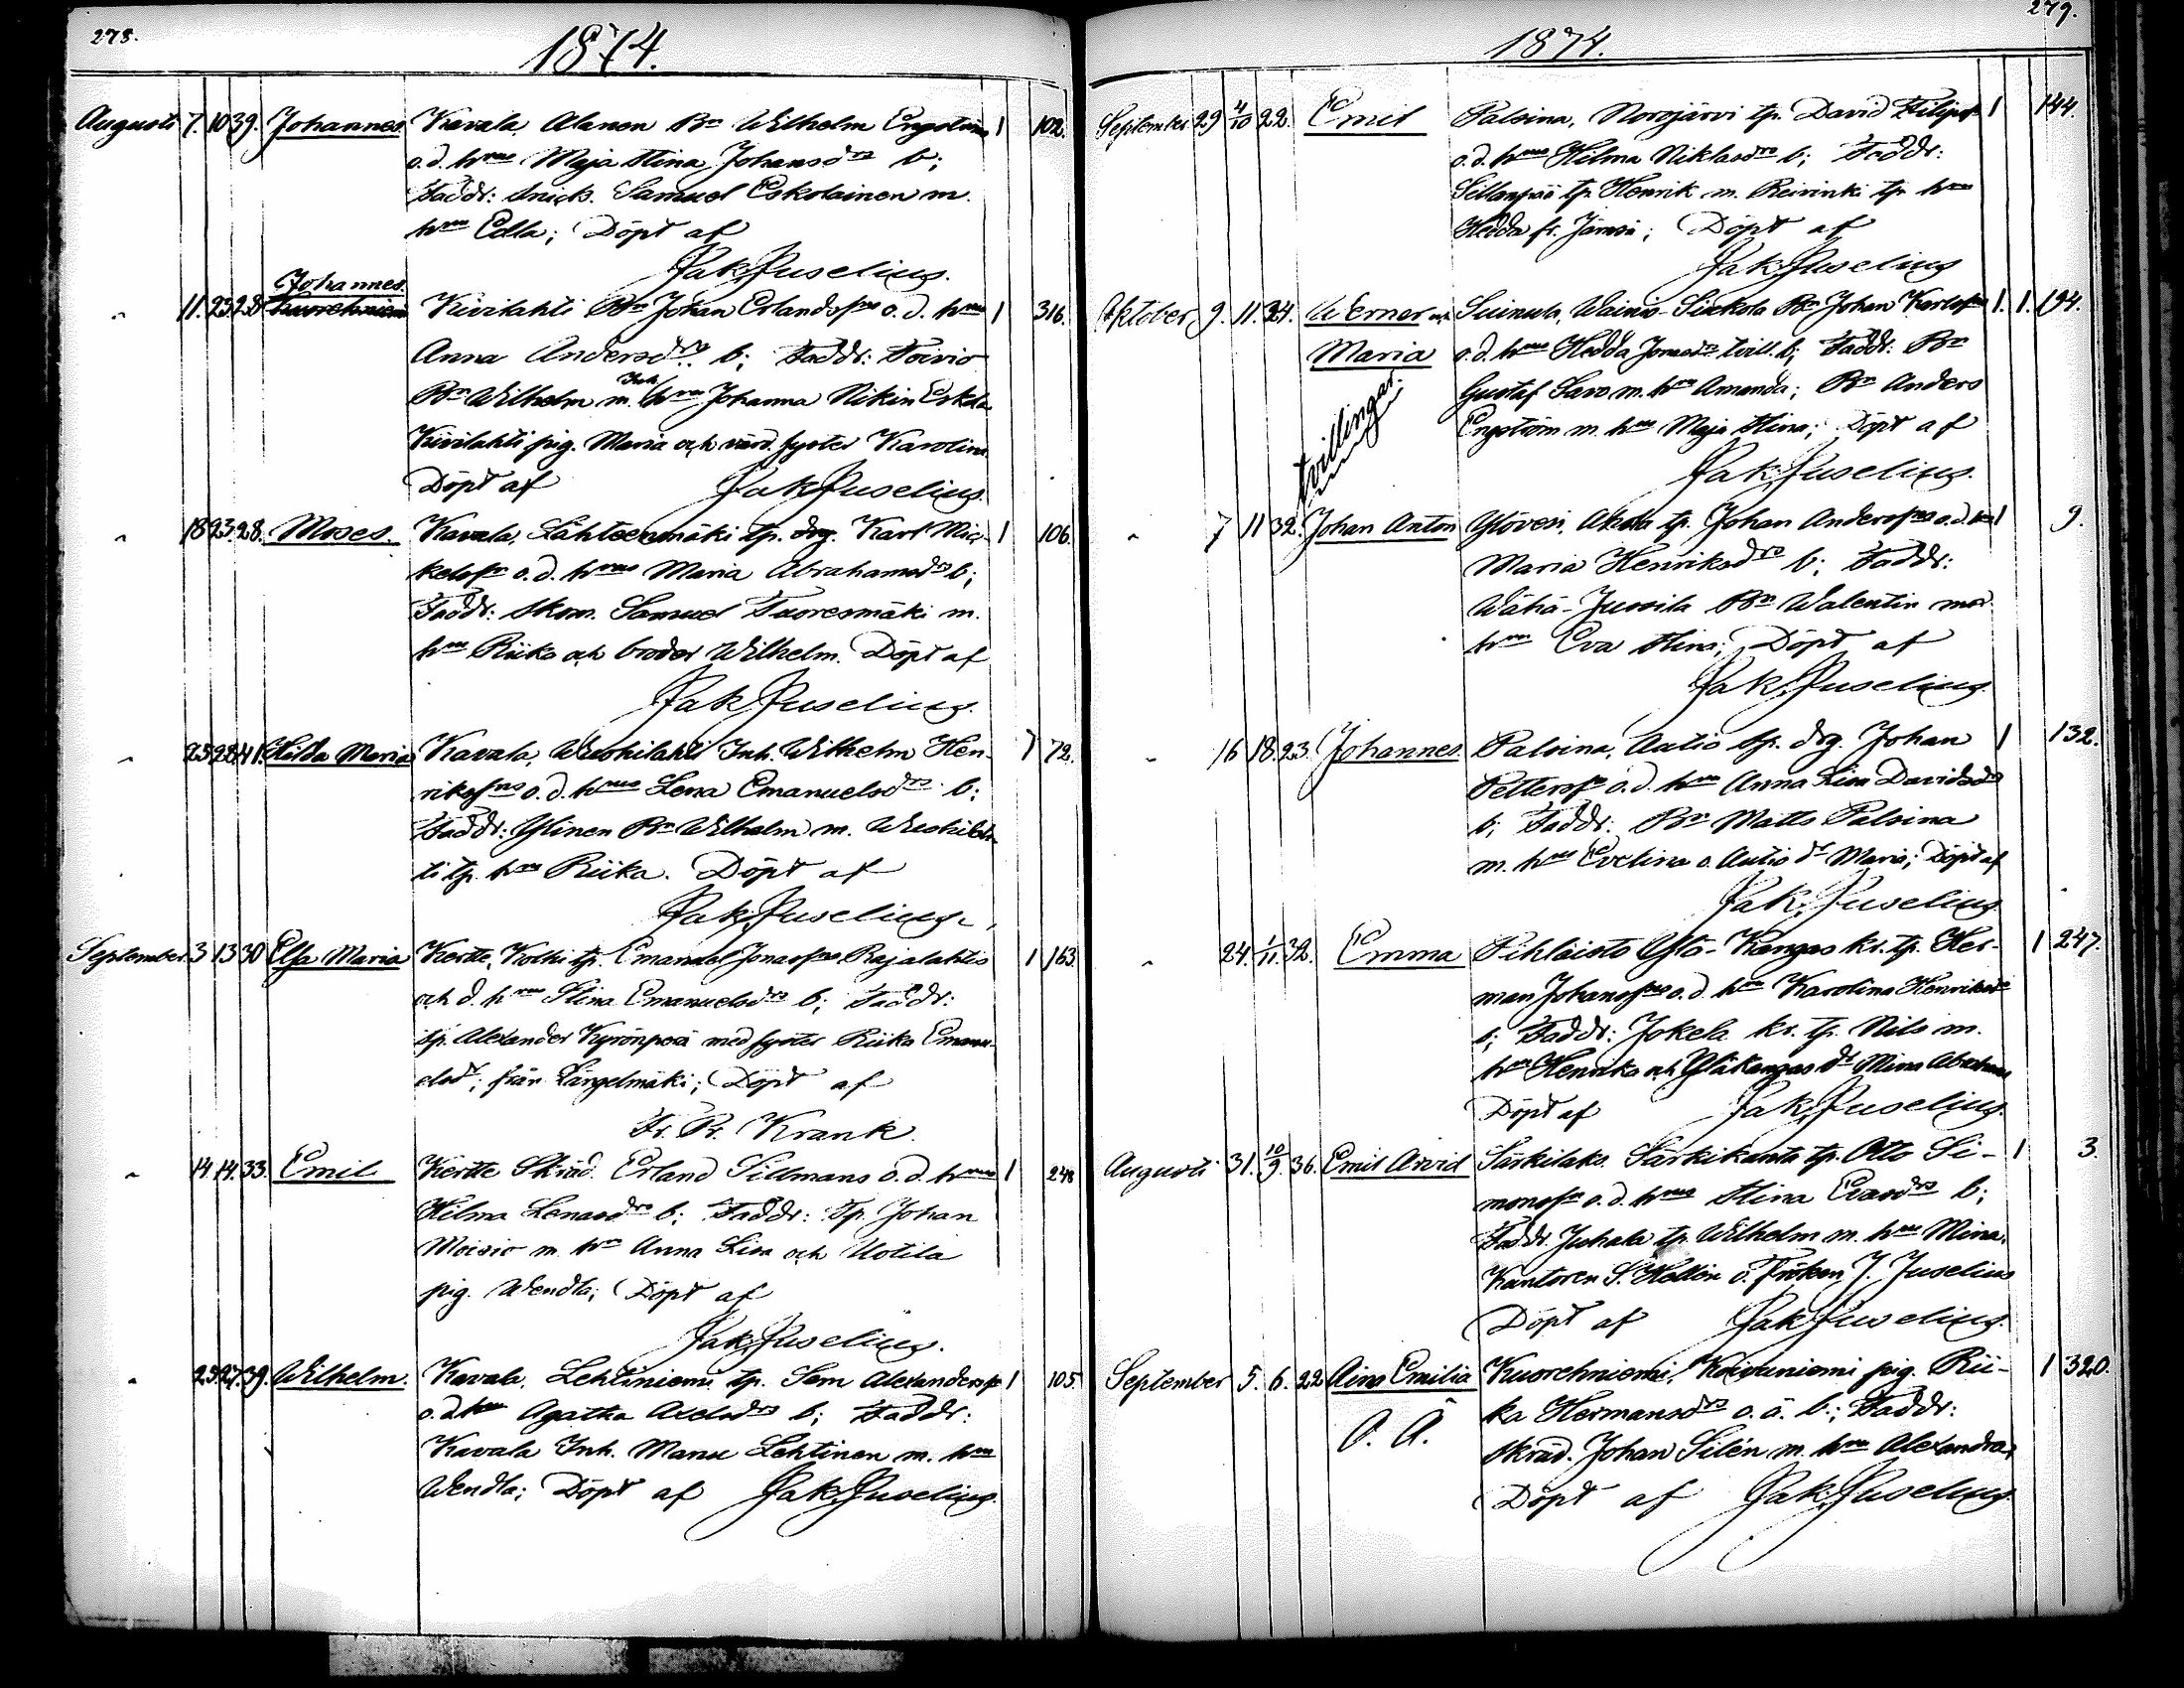 278.
1874.
Augusti 7. 10 39. Johannes. Kavala, Alanen Bn Wilhelm Engström 1 102.
o.d. hrus Maja Stina Johansdrs b;
Faddr: Snick. Samuel Eskolainen m.
hru Edla; Döpt af
Jak. Juselius.
Johannes.
" 11. 23 28 Kuorehniemi Kivilahti Bn Johan Erlandsfns o. d. hrus 1 316.
Anna Andersdrs b; Faddr: Toivio
Bn Wilhelm m. hru Johanna Nikin Eskola
Inh.
Kivilahti pig. Maria och värd. syster Karolina.
Döpt af Jak. Juselius.
" 18 23 28. Moses. Kavala, Lähteenmäki tp. drg. Karl Mic- 1 106.
kelsfns o.d. hrus Maria Abrahamsdrs b;
Faddr: Skom. Samuel Tuoresmäki m.
hru Riika och broder Wilhelm. Döpt af
Jak. Juselius.
" 25 28 41. Hilda Maria Kavala, Wuohilahti Inh. Wilhelm Hen- 1 72.
riksfns o.d. hrus Lena Emanuelsdrs b;
Faddr: Ylinen Bn Wilhelm m. Wuohilah-
ti tp. hru Riika. Döpt af
Jak. Juselius.
September 3 13 30 Elsa Maria Kertte, Kolhi tp. Emanuel Jonasfns Rajalahtis 1 163.
och d. hrus Stina Emanuelsdrs b; Faddr:
tp. Alexander Kyrönperä med syster Riika Emanu-
elsdr; från Längelmäki; Döpt af
Fr. Pr. Krank.
" 14. 14. 33. Emil Kertte Skräd. Erland Sillmans o.d. hrus 1 248
Hilma Lenasdrs b; Faddr: Tp. Johan
Moisio m. hru Anna Lisa och Uotila
pig. Wendla; Döpt af
Jak. Juselius.
" 25. 27. 39. Wilhelm. Kavala, Lehtiniemi tp. Sem Alexandersfns 1 105.
o.d. hrus Agatha Axelsdrs b; Faddr:
Kavala Inh. Manu Lehtinen m. hru
Wendla; Döpt af Jak. Juselius.
279.
1874.
September 29 4/10 22. Emil Palsina, Norojärvi tp. David Filipsf. 1 144.
o.d. hrus Hilma Niklasdrs b; Faddr:
Sillanpää tp. Henrik m. Reivinki tp. hru
Hedda fr. Jämsä; Döpt af
Jak. Juselius
Oktober 9. 11. 24. Werner och Suinula, Wainio-Siukola Bn Johan Karlsfns 1. 1. 194.
Maria o.d. hrus Hedda Jonasdrs tvill. b; Faddr: Bn
tvillingar. Gustaf Saro m. hru Amanda; Bn Anders
Engström m. hru Maja Stina; Döpt af
Jak. Juselius.
" 7 11 32. Johan Anton Ylövesi, Akola tp. Johan Andersfns o.d. hrus 1 9.
Maria Henriksdrs b; Faddr:
Wähä-Jussila Bn Walentin med
hru Eva Stina; Döpt af
Jak. Juselius.
" 16 18. 23. Johannes. Palsina, Autio tp. drg. Johan 1 132.
Pettersfs o.d. hru Anna Lisa Davidsdrs
b; Faddr: Bn Matts Palsina
m. hru Evelina o. Autio dr Maria; Döpt af
Jak. Juselius
" 24. 1/11. 32. Emma Pihlaisto Ylä-Kangas kr. tp. Her- 1 247.
man Johansfns o.d. hru Karolina Henriksdrs
b; Faddr: Jokela kr. tp. Nils m.
hru Henrika och Yläkangas dr Mina Abrahams
Döpt af Jak. Juselius.
Augusti 31. 10/9. 36. Emil Arvid Särkilaks. Särkikanta tp. Otto Si- 1 3.
monsfns o.d. hrus Stina Evasdrs b;
Faddr. Juhala tp. Wilhelm m. hru Mina.
Kantoren S. Hellén o. Fröken J. Juselius
Döpt af Jak. Juselius.
September 5. 6. 22 Aina Emilia Kuorehniemi, Koivuniemi pig. Rii- 1 320.
O. Ä. ka Hermansdrs o. ä. b.; Faddr:
Skräd. Johan Silén m. hru Alexandra,
Döpt af Jak. Juselius.